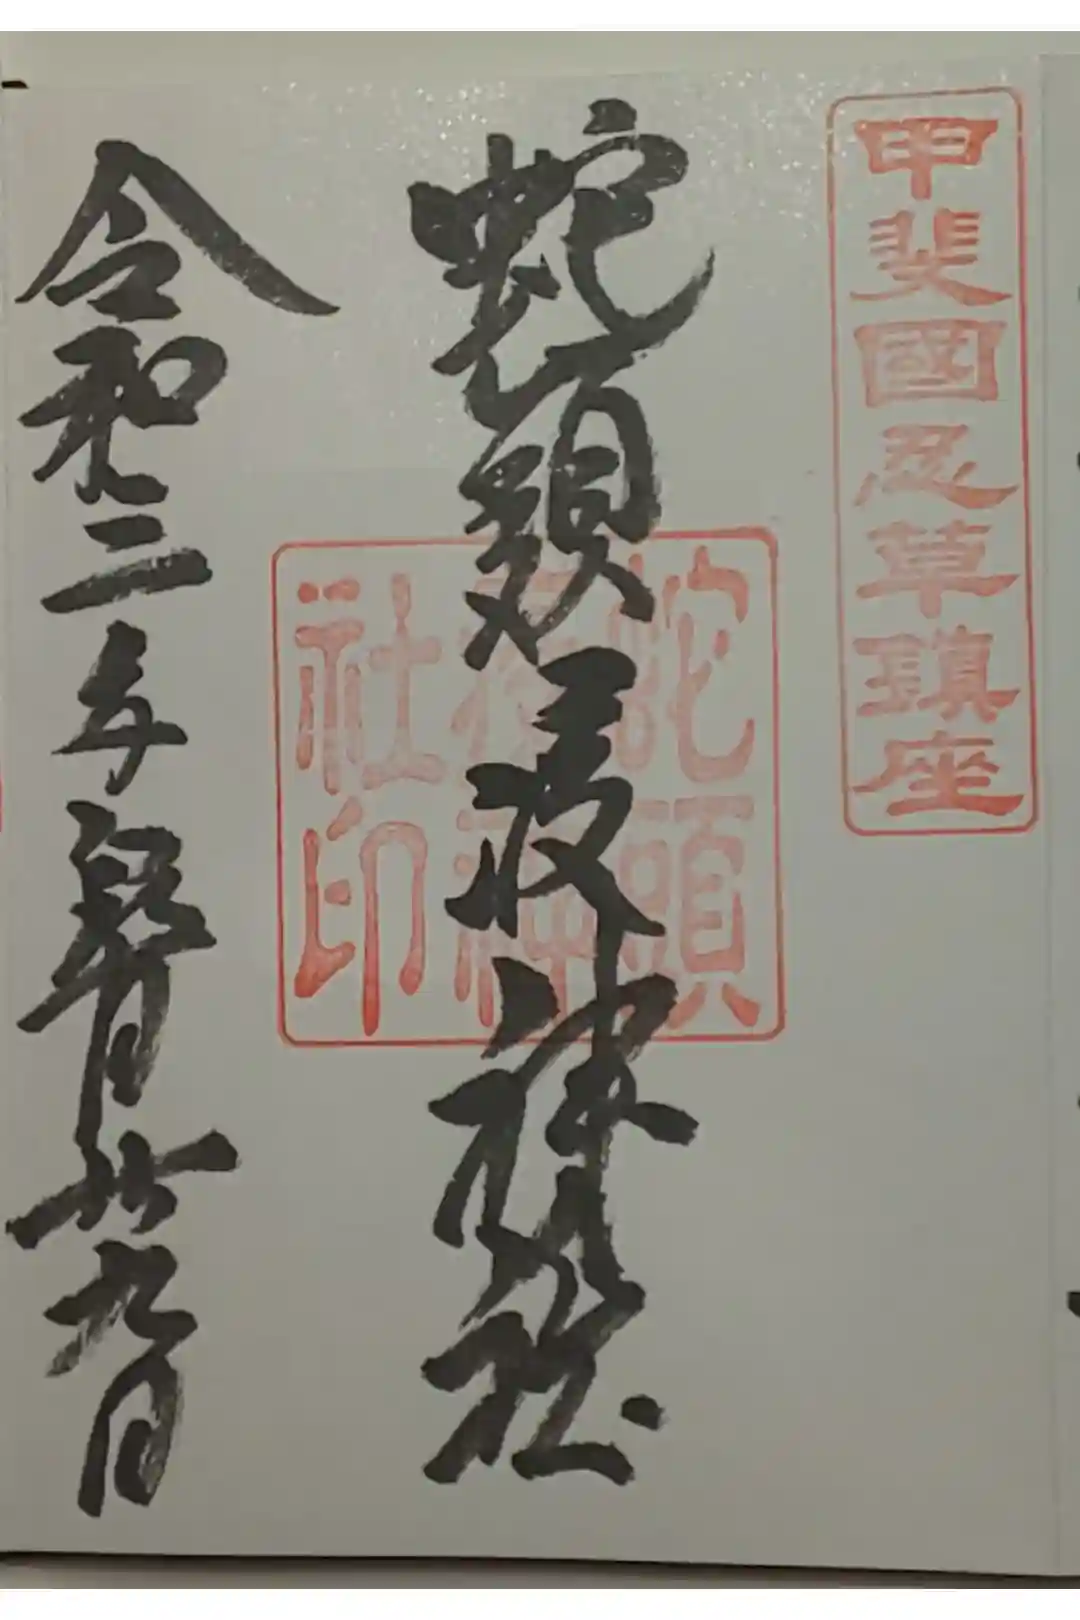 甲斐國忍草鎮座
蛇頭疫神社
蛇頭
疫神
社印
令和二年月廿九日